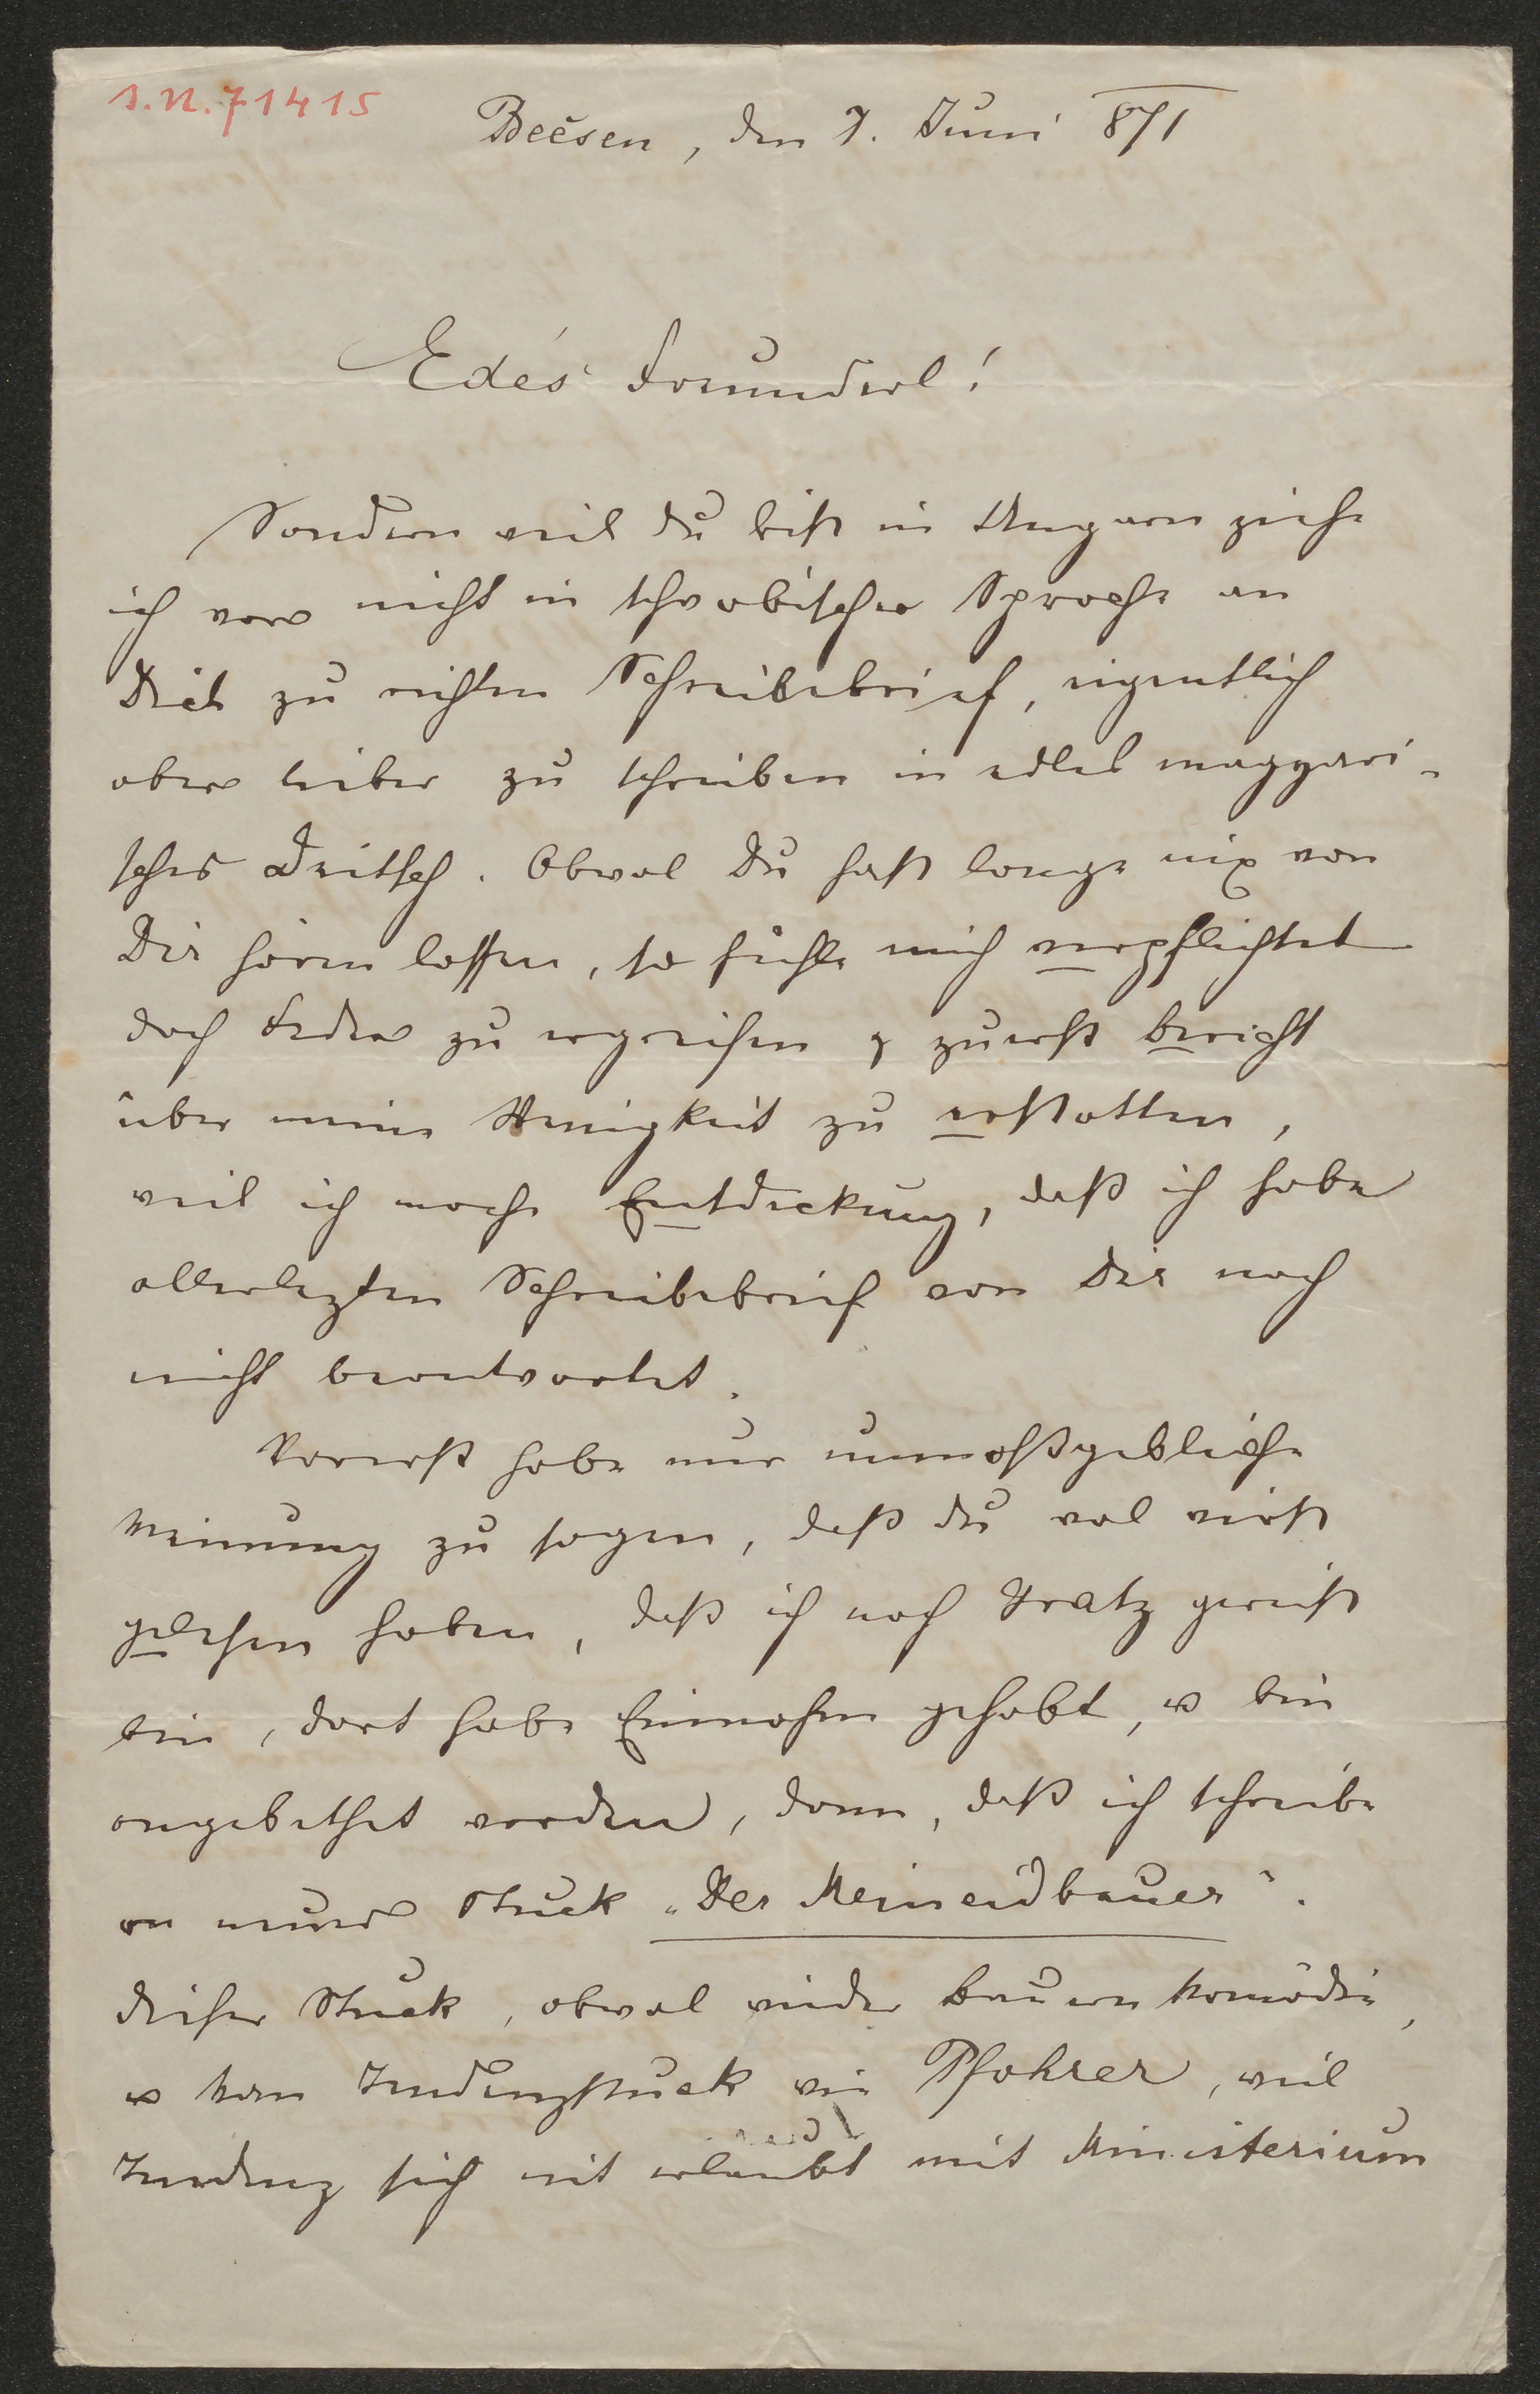 I.N. 71415
Beésen, den 7. Juni 871
Edés Freunderl!
Sondern weil Du bist in Ungarn ziehe
ich vor nicht in schwobischer Sproche an
Dich zu richten Schreibebrief, eigentlich
ober lieber zu schreiben in edles magyari-
sches Deitsch. Obwol Du host longe nix von
Dir hören lossen, so fühle mich verpflichtet
doch Feder zu ergreifen & zuerst bericht
über meine Wenigkeit zu erstotten,
weil ich moche Entdeckung, doß ich hobe
ollerlezten Schreibebrief von Dir noch
nicht beontwortet.
Vorerst hobe nur unmoßgebliche
Meinung zu sogen, doß Du wol wirst
gelesen hoben, doß ich noch Gratz gereist
bin, dort hobe Einnohm gehobt, u bin
ongebethet worden, donn, doß ich schreibe
on neues Stuck „Der Meineidbauer".
dieser Stuck, obwol wieder Bauern Komödie,
u kan Tendenzstuck wie Pfohrer, weil
Tendenz sich nit erlaubt mit Ministerium